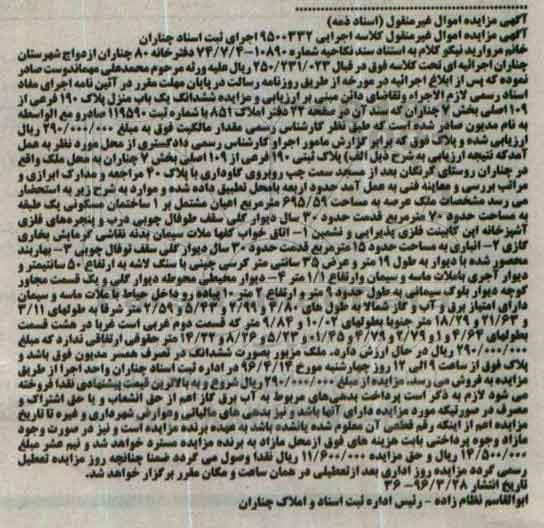 آگهی مزایده اموال غیرمنقول (اسناد ذمه)
آگهی مزایده اموال غیرمنقول کلاسه اجرایی ۹۵۰۰۳۳۲ اجرای ثبت اسناد چناران
خانم مروارید نیکو کلام به استناد سند نکاحیه شماره ۱۰۸۹۰-۷۴/۷/۴ دفترخانه ۸۰ چناران ازدواج شهرستان
چناران اجرائیه ای تحت کلاسه فوق در قبال ۲۵۰/۲۳۱/۰۲۳ ریال علیه ورثه مرحوم محمدعلی مهماندوست صادر
نموده که پس از ابلاغ اجرائیه در مورخه از طریق روزنامه رسالت در پایان مهلت مقرر در آئین نامه اجرای مفاد
اسناد رسمی لازم الاجراء وتقاضای دائن مبنی بر ارزیابی و مزایده ششدانگ یک باب منزل پلاک ۱۹۰ فرعی از
۱۰۹ اصلی بخش ۷ چناران که سند آن در صفحه ۲۳ دفتر املاک ۸۵۱ با شماره ثبت ۱۱۹۵۹۰ صادرو مع الواسطه
به نام مدیون صادر شده است که طبق نظر کارشناس رسمی مقدار مالکیت فوق به مبلغ ۲۹۰/۰۰۰/۰۰۰ ریال
ارزیابی شده و پلاک فوق که برابر گزارش مامور اجراو کارشناس رسمی دادگستری از محل مورد نظر به عمل
آمدکه نتیجه ارزیابی به شرح ذیل الف) پلاک ثبتی ۱۹۰ فرعی از ۱۰۹ اصلی بخش ۷ چناران به محل ملک واقع
در چناران روستای گرنگان بعد از مسجد سمت چپ روبروی گاوداری با پلاک ۴۰ مراجعه و مدارک ابرازی و
مراتب بررسی و معاینه فنی به عمل آمد حدود اربعه بامحل تطبیق داده شده و موارد به شرح زیر به استحضار
می رسد مشخصات ملک عرصه به مساحت ۶۹۵/۵۹ مترمربع اعیان مشتمل بر ۱ ساختمان مسکونی یک طبقه
به مساحت حدود ۷۰ مترمربع قدمت حدود ۳۰ سال دیوار گلی سقف طوفال چوبی درب و پنجره های فلزی
آشپزخانه اپن کابینت فلزی پذیرایی و نشیمن ۱- اتاق خواب کفها ملات سیمان بدنه نقاشی گرمایش بخاری
گازی ۲- انباری به مساحت حدود ۱۵ مترمربع قدمت حدود ۳۰ سال دیوار گلی سقف توفال چوبی ۳- بهاربند
محصور شده با دیوار به طول ۱۹ متر و عرض ۳۵ سانتی متر کرسی چینی با سنگ لاشه به ارتفاع ۵۰ سانتیمتر و
دیوار آجری باملات ماسه و سیمان وارتفاع ۱/۱ متر ۴- دیوار محیطی محوطه دیوار گلی و یک قسمت مجاور
کوچه دیوار بلوک سیمانی به طول حدود ۹ متر و ارتفاع ۲ متر ۱۰ پیاده رو وداخل حیاط با ملات ماسه و سیمان
دارای امتیاز برق و آب و گاز شمالا به طول های ۳/۸۰ و ۲/۹۹ و ۵/۴۳ و ۲/۵۹ متر شرقا به طولهای ۳/۱۱
و ۲۱/۶۳ و ۱۸/۲۹ متر جنوبا بطولهای ۱۰/۰۲ و ۹/۸۴ متر که قسمت دوم غربی است غربا در هشت قسمت
بطولهای ۴/۶۴ و ۱ و ۲/۷۹ و ۴/۷۹ و ۰۱/۴۵ و ۵/۲۳ و ۸/۲۶ و ۱۴/۲۲ متر حقوقی ارتفاقی ندارد که مبلغ
۲۹۰/۰۰۰/۰۰۰ ریال در حال ارزش دارد. ملک مزبور بصورت ششدانگ در تصرف همسر مدیون فوق باشد و
پلاک فوق از ساعت ۹ الی ۱۲ روز چهارشنبه مورخ ۹۶/۴/۱۴ در اداره ثبت اسناد چناران واحد اجرا از طریق
مزایده به فروش می رسد. مزایده از مبلغ ۲۹۰/۰۰۰/۰۰۰ ریال شروع و به بالاترین قیمت پیشنهادی نقدا فروخته
می شود لازم به ذکر است پرداخت بدهی های مربوط به آب برق گاز اعم از حق انشعاب و یا حق اشتراک و
مصرف در صورتیکه مورد مزایده دارای آنها باشد و نیز بدهی های مالیاتی وعوارض شهرداری و غیره تا تاریخ
مزایده اعم از اینکه رقم قطعی آن معلوم شده یانشده باشد به عهده برنده مزایده است و نیز در صورت وجود
مازاد وجوه پرداختی بابت هزینه های فوق ازمحل مازاد به برنده مزایده مسترد خواهد شد و نیم عشر مبلغ
۱۴/۵۰۰/۰۰۰ ریال و حق مزایده ۱۱/۶۰۰/۰۰۰ ریال نقدا وصول می گردد ضمنا چنانچه روز مزایده تعطیل
رسمی گردد مزایده روز اداری بعد ازتعطیلی در همان ساعت و مکان مقرر برگزار خواهد شد.
تاریخ انتشار ۹۶/۳/۲۸- ۳۶
ابوالقاسم نظام زاده - رئیس اداره ثبت اسناد و املاک چناران